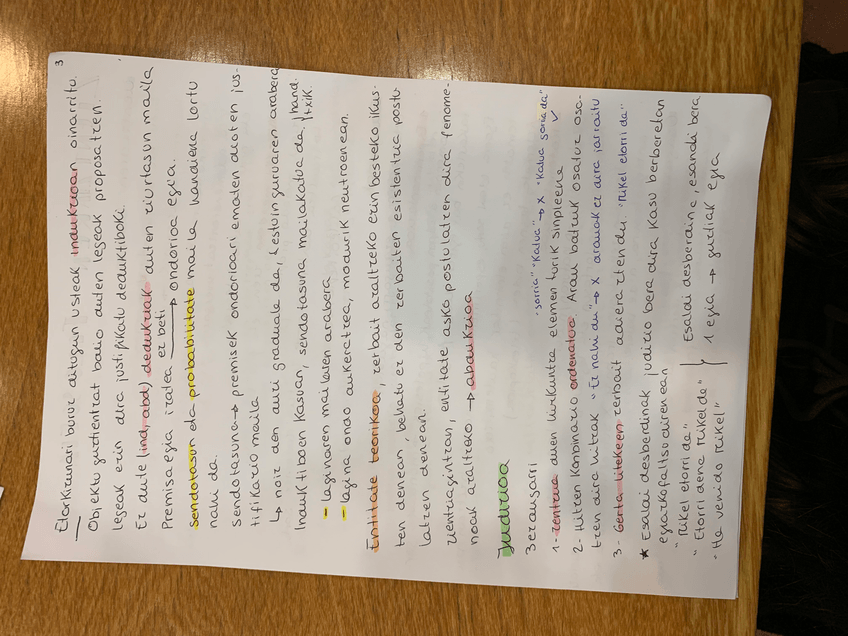 3
Etorkizunari buruz ditugun usteak indukzioan oinarritu.
Objektu guztientzat balio duten legeak proposatzen.
legeak ezin dira justifikatu deduktiboki.
Ez dute (ind, abd) dedukziak duten ziurtasun maila
Premisa egia izatea ez beti → ondorioa egia.
sendotasun eta probabilitate maila handiena lortu
nahi da.
sendotasuna → premisek ondorioari ematen dioten jus-
tifikazio maila
↳ noiz den auzi graduala da, testuinguruaren arabera
Induktiboen kasuan, sendotasuna mailakatua da. hand.
txik.
- laginaren mailaren arabera
- lagina ondo aukeratzea, modurik neutroenean.
Entitate teorikoa, zerbait azaltzeko ezin besteko ikus-
ten denean, behatu ez den zerbaiten existentzia postu-
latzen denean.
zientzagintzan, entitate asko postulatzen dira fenome-
noak azaltzeko → abdukzioa
Judizioa
3 ezaugarri
"sorria" "Kalua" → x "Kalua sorria da" ✓
1- zentzua duen hizkuntza elementurik sinpleena
2- Hitzen konbinazio ordenatua. Arau batzuk osatuz osa-
tzen dira hitzak "Ez nahi du" → x arauak ez dira jarraitu
3- Gerta litekeen zerbait adierazten du. "Mikel etorri da"
* Esaldi desberdinak judizio bera dira kasu berberetan
egiazko/faltsu direnean
"Mikel etorri da"
"Etorri dena Mikel da" } Esaldi desberdina, esanahi bera
"Ha venido Mikel" 1 egia → guztiak egia